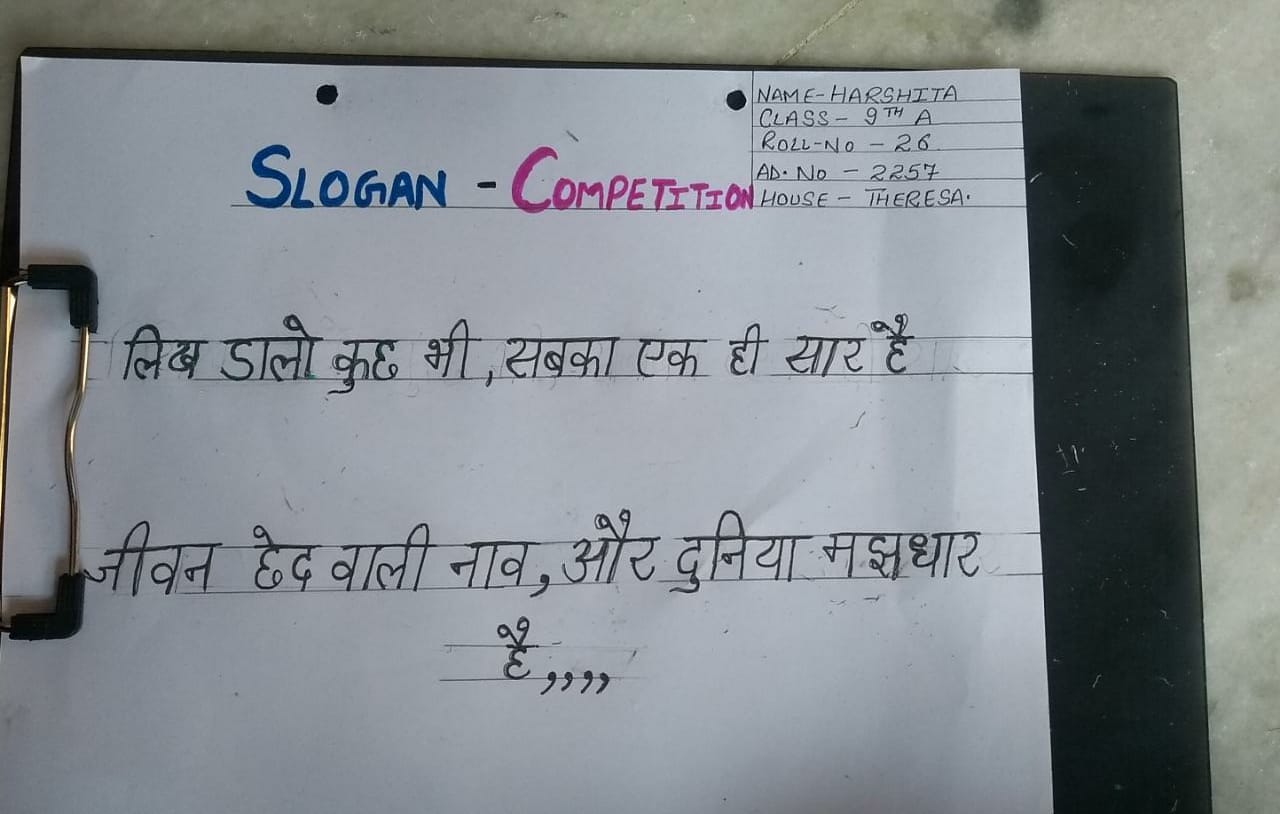 NAME-HARSHITA
CLASS - 9TH A
ROLL-NO - 26
AD. NO - 2257
HOUSE - THERESA.
SLOGAN - COMPETITION
लिख डालो कुछ भी, सबका एक ही सार है
जीवन छेद वाली नाव, और दुनिया मझधार
है,,,,